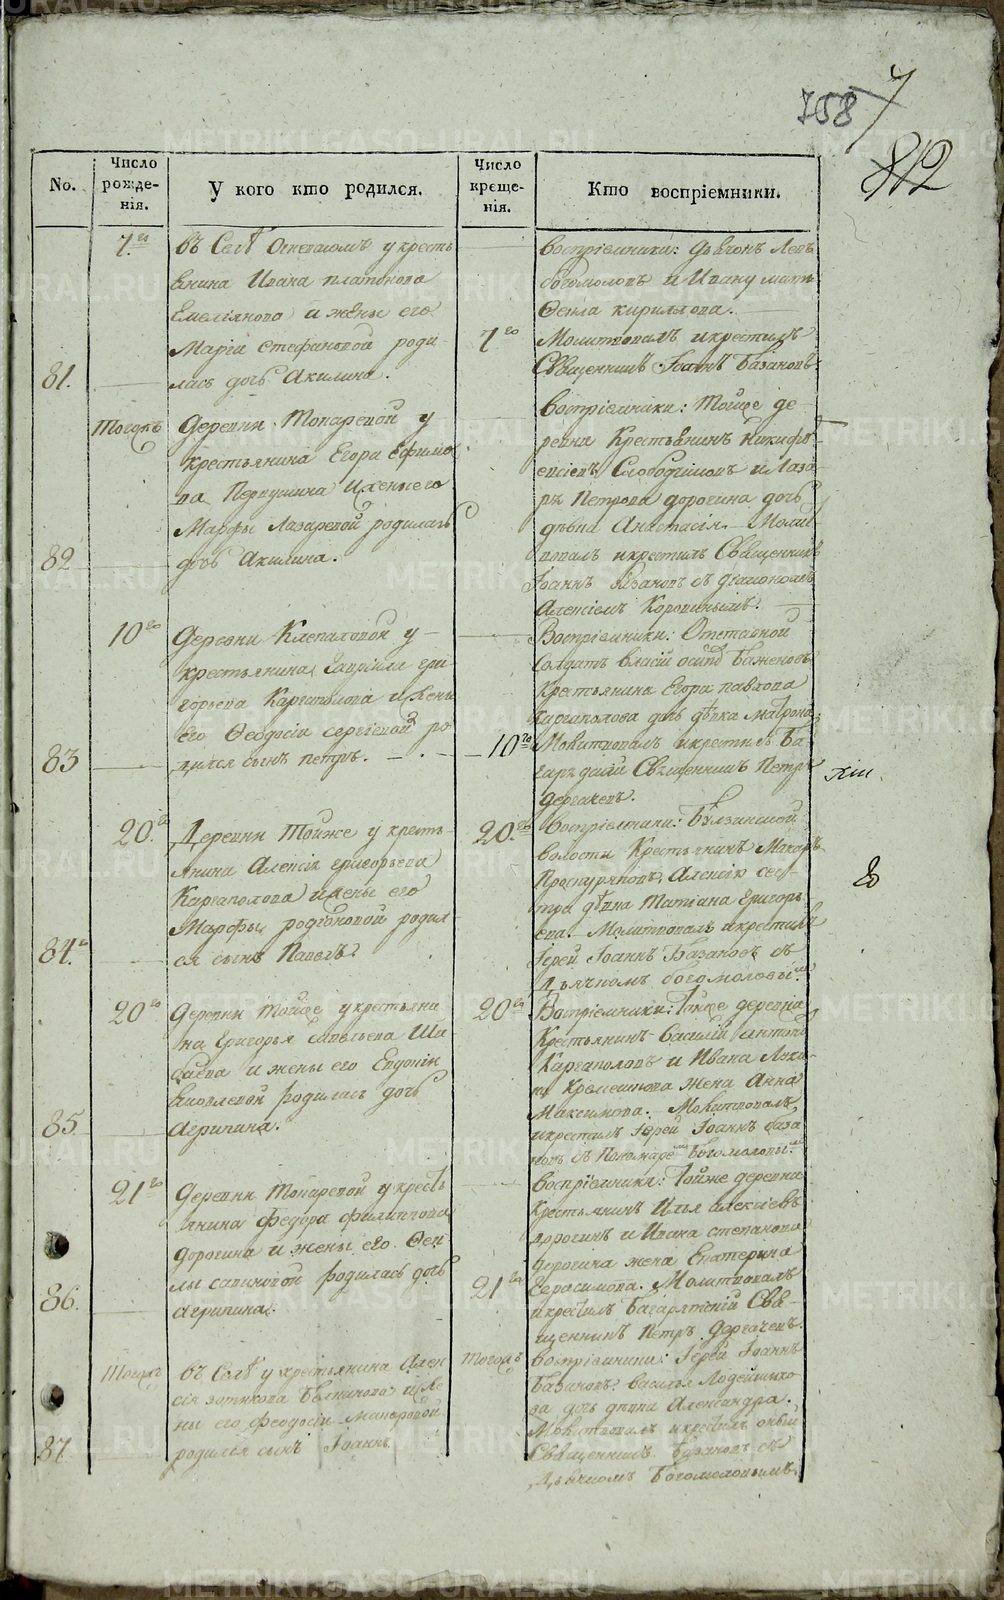 758
7
812
No.
Число рожде-нія.
У кого кто родился.
Число креще-нія.
Кто воспріемники.
81.
7.го
въ Селѣ Огневскомъ у кресть
янина Ивана платонова
Емеліянова и жены его
Маріи Стефановой роди
лась дочь Акилина.
7го
воспріемники:
богомоловъ и Ивану мать
Ѳекла кириллова.
Молитвовалъ и крестилъ
Священникъ Іоаннъ Базановъ.
82
Тогожъ
Деревни Токаревой у
крестьянина Егора Ефимо
ва и жены его
Марфы Лазаревой родилась
дочь Акилина.
воспріемники: Тойже де-
ревни Крестьянинъ Никифоръ
и Лаза
ря Петрова дорогина дочь
дѣвка Анастасія. Моли
твовалъ и крестилъ Священникъ
Іоаннъ Базановъ съ діакономъ
Алексіемъ
83
10го
Деревни Клепаловой у
крестьянина Гавріила гри
горьева Каргаполова и жены
его Ѳеодосіи сергіевой ро
дился сынъ петръ.
10го
Воспріемники: Отставной
солдатъ власій осиповъ Баженовъ
Крестьянина Егора павлова
Каргаполова дочь дѣвка матрона
Молитвовалъ и крестилъ Ба
гарядскій Священникъ Петръ
Дергачевъ.
84.
20.го
Деревни Тойже у кресть-
янина Алексія григорьева
Каргаполова и жены его
Марфы родіоновой родил
ся сынъ Павелъ.
20.го
воспріемники:
волости Крестьянинъ Макаръ
Проскуряковъ, Алексія сес-
тра дѣвка Татіана Григорь
ева. Молитвовалъ и крестилъ
Іерей Іоаннъ Базановъ съ
Дьячкомъ богомоловымъ
85
20го
Деревни Тойже у крестьяни
на Григорья савельева
и жены его Евдокіи
Яковлевой родилась дочь
Агрипина.
20го
Воспріемники: Тойже деревни
Крестьянинъ Василій антоновъ
Каргаполовъ и Ивана
жена Анна
Максимова. Молитвовалъ
и крестилъ Іерей Іоаннъ база
новъ съ Пономаремъ Богомоловымъ
86.
21го
Деревни Токаревой у кресть
янина Ѳедора филиппова
дорогина и жены его Ѳек
лы савиновой родилась дочь
Агрипина.
21го
воспріемники: Тойже деревни
Крестьянинъ Илья алексіевъ
дорогинъ и Ивана степанова
дорогина жена Екатерина
Герасимова. Молитвовалъ
и крестилъ Багарятскій Свя-
щенникъ Петръ Дергачевъ.
87.
Тогожъ
въ Селѣ у крестьянина Алек
сія и же
ны его Феодосіи Макаровой
родился сынъ Іоаннъ.
Тогожъ
воспріемники: Іерей Іоаннъ
Базановъ. василья
ва дочь дѣвка Александра.
Молитвовалъ и крестилъ оный
Священникъ Базановъ съ
Дьячкомъ Богомоловымъ.
METRIKI.GASO-URAL.RU